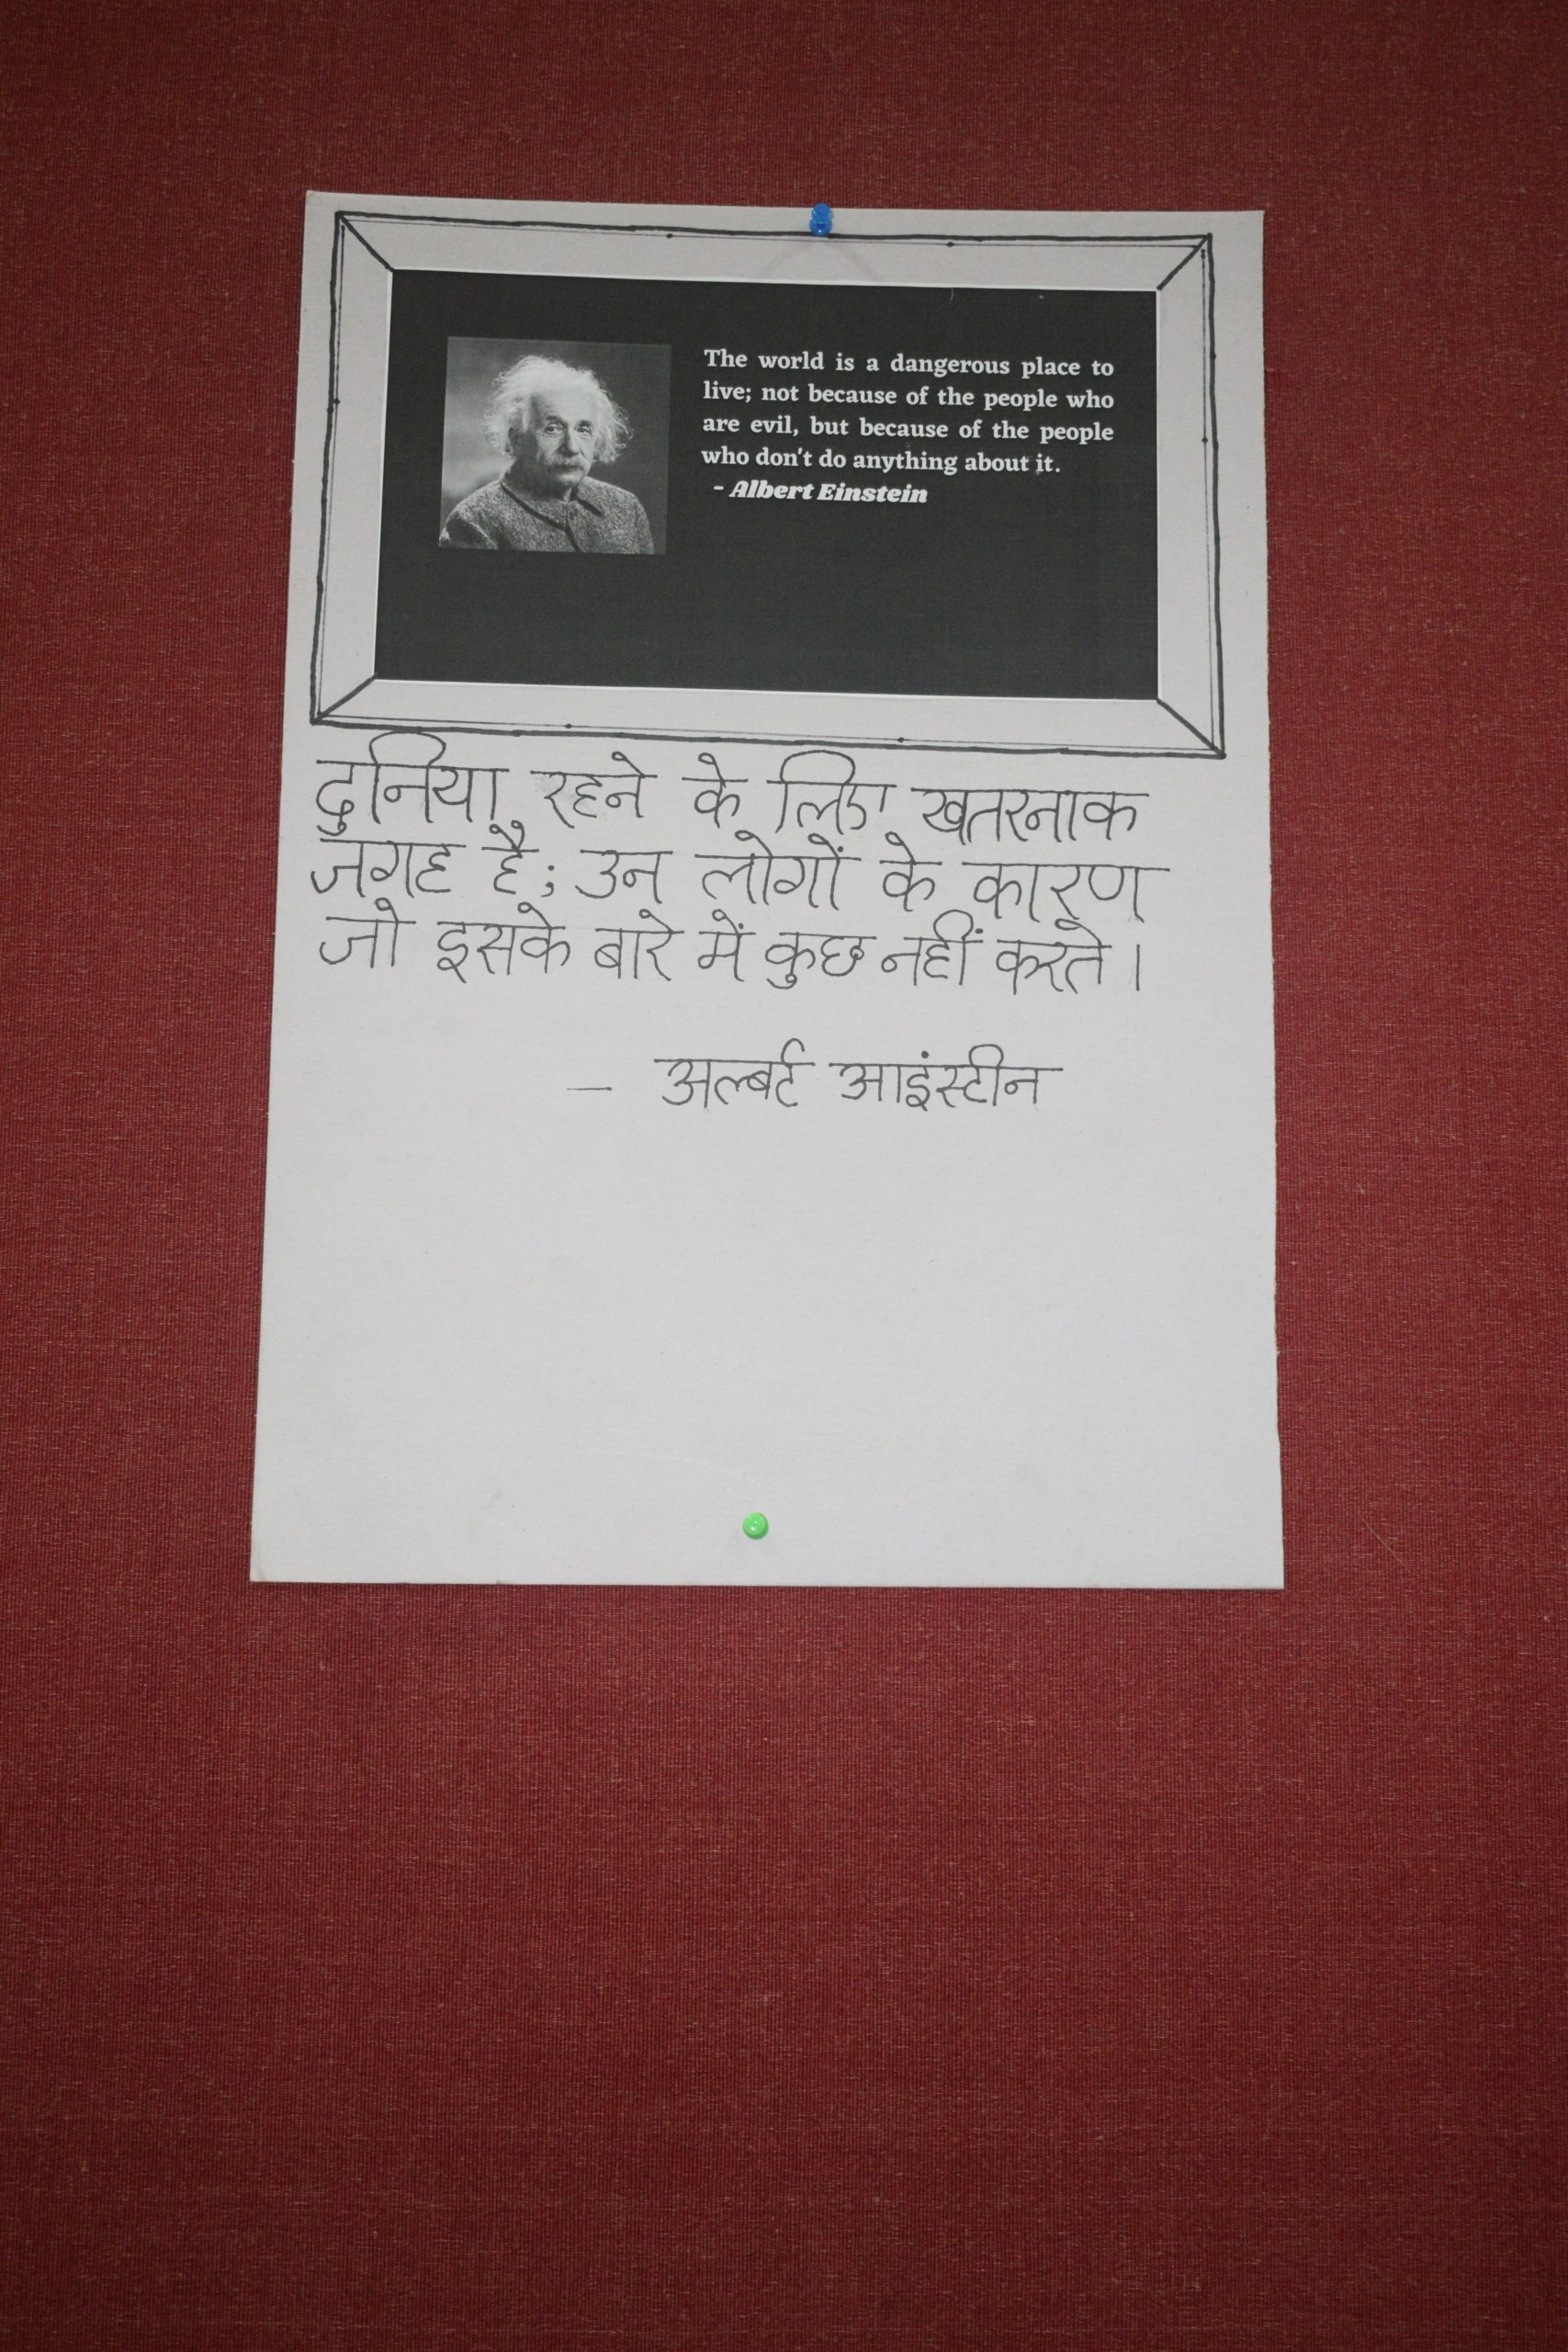 The world is a dangerous place to
live; not because of the people who
are evil, but because of the people
who don't do anything about it.
- Albert Einstein
दुनिया रहने के लिए खतरनाक
जगह है; उन लोगों के कारण
जो इसके बारे में कुछ नहीं करते।
– अल्बर्ट आइंस्टीन